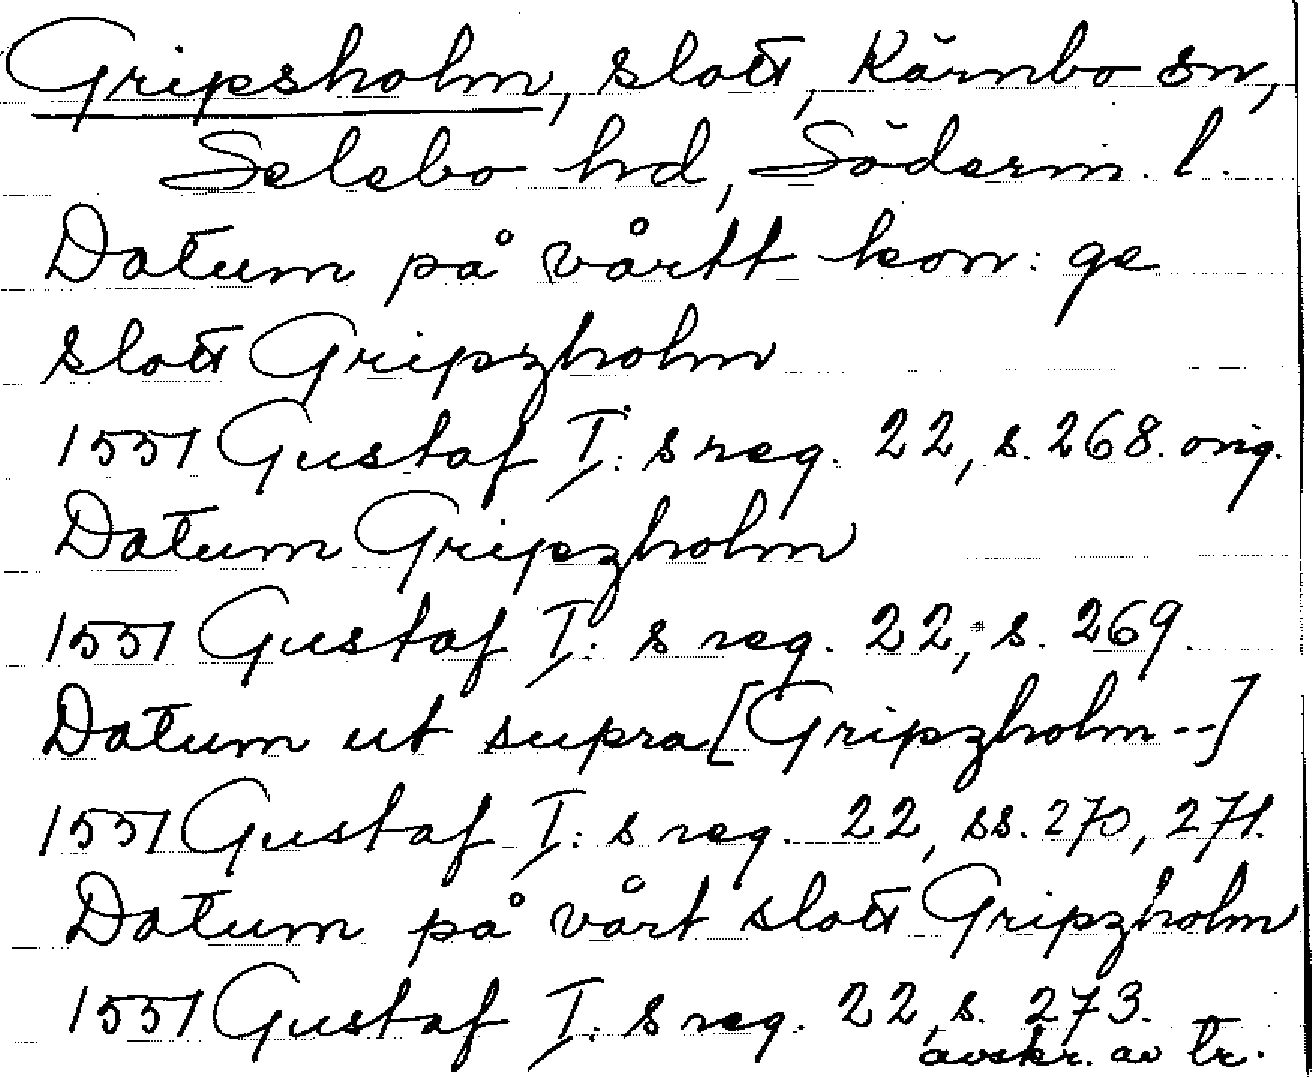 Gripsholm, slott, Kärnbo sn,
Selebo hd, Söderm. l.
Datum på vårtt kon: ge
slott Gripzholm
1551 Gustaf I: s reg. 22, s. 268. orig.
Datum Gripzholm
1551 Gustaf I: s reg. 22, s. 269.
Datum ut supra [Gripzholm --]
1551 Gustaf I: s reg. 22, ss. 270, 271.
Datum på vårt slott Gripzholm
1551 Gustaf I: s reg. 22, s. 273.
avskr. av tr.